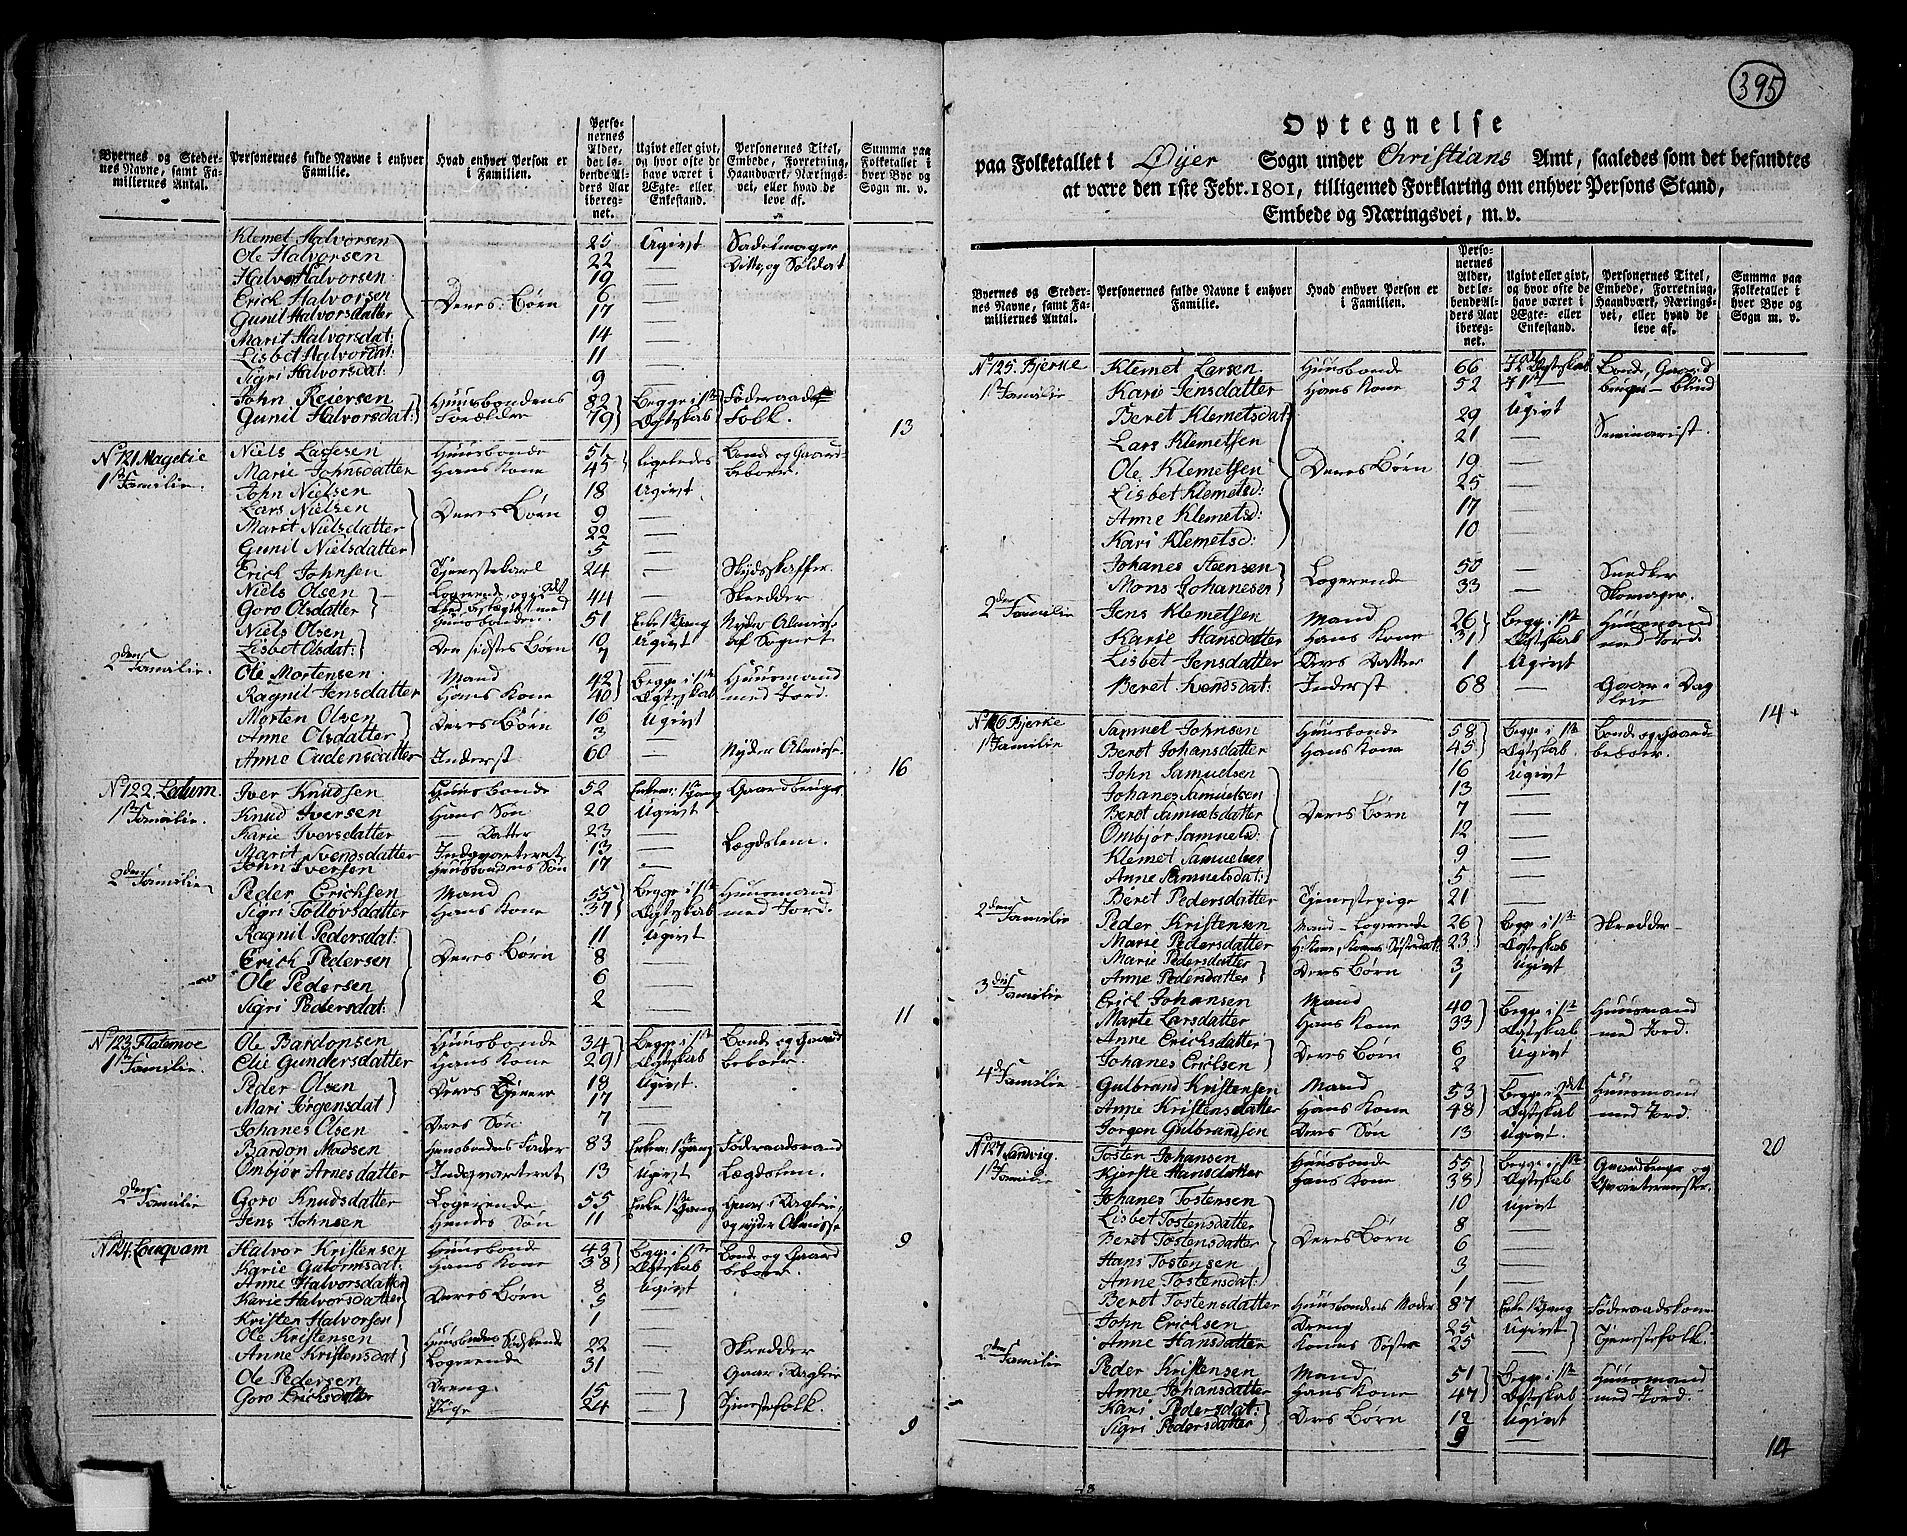 395
Byernes og Steder-
nes Navne, samt Fa-
miliernes Antal.
Personernes fulde Navne i enhver
Familie.
Hvad enhver Person er
i Familien.
Perso-
nernes
Alder,
det lø-
bende Al-
ders Aar
ibereg-
net.
Ugivt eller givt,
og hvor ofte de
have været i
Ægte- eller
Enkestand.
Personernes Titel,
Embede, Forretning,
Haandværk, Nærings-
vei, eller hvad de
leve af.
Summa paa
Folketallet i
hver Bye og
Sogn m. v.
Klemet Halvorsen 25 Ugivt Sadelmager
Ole Halvorsen 22 — Ditto, og Soldat
Halvor Halvorsen 19 —
Erich Halvorsen Deres Børn 6 —
Gunil Halvorsdatter 17 —
Marit Halvorsdat: 14 —
Lisbet Halvordat: 11 —
Sigri Halvorsdat: 9 —
John Reiersen Huusbondens 82 Begge i 1ste Føderaads
Gunil Halvorsdat: Forældre 79 Ægteskab Folk. 13
No 121 Magelie Niels Larsen Huusbonde 51 ligeledes Bonde og Gaard-
1ste Familie. Marie Johnsdatter Hans Kone 45 beboer.
John Nielsen 18 Ugivt
Lars Nielsen Deres Børn 9 —
Marit Nielsdatter 22 —
Gunil Nielsdatter 5 —
Erich Johnsen Tienestekarl 24 — Skydsskaffer
Niels Olsen Logerende 44 — Skredder
Goro Olsdatter Huusbonden. 51 Enke 1 Gang Nyder Almisse
Niels Olsen 10 Ugivt af Sognet
Lisbet Olsdat: Den sidstes Børn 7
2den Familie. Ole Mortensen Mand 42 Begge i 1ste Huusmand
Ragnil Jensdatter Hans Kone 40 Ægteskab med Jord.
Morten Olsen Deres Børn 16 Ugivt
Anne Olsdatter 3 —
Anne Audensdatter Inderst 60 — Nyder Almisse. 16
No 122. Ledum. Iver Knudsen Huusbonde 52 Enkem: 1 Gang Gaardbruger
1ste Familie. Knud Iversen Hans Søn 20 Ugivt
Karie Iversdatter — Datter 23 —
Marit Svendsdatter Indqvarteret 13 — Lægdslem.
John Iversen Huusbondens Søn 17 —
2den Familie Peder Erichsen Mand 55 Begge i 1ste Huusmand
Sigri Tollovsdatter Hans Kone 37 Ægteskab med Jord.
Ragnil Pedersdat: 11 Ugivt
Erich Pedersen Deres Børn 8 —
Ole Pedersen 6 —
Sigri Pedersdat: 2 — 11
No 123. Flatemoe Ole Bardonsen Huusbonde 34 Begge i 1ste Bonde og Gaard
1ste Familie. Elie Gundersdatter Hans Kone 29 Ægteskab beboer
Peder Olsen Deres Tienere 18 Ugivt.
Mari Jørgensdat 17 —
Johanes Olsen Deres Søn 7 —
Bardon Madsen Huusbondes Fader 83 Enkem: 1 Gang Føderaadsmand
Ombjør Arnesdatter Indqvarteret 13 Ugivt Lægdslem.
2den Familie Goro Knudsdatter Logerende 55 Enke 1 Gang
Jens Johnsen Hendes Søn 11 og nyder Almisse 9
No 124. Halvor Kristensen Huusbonde 43 Begge i 1ste Bonde og Gaard
Karie Gutormsdat: Hans Kone 38 Ægteskab beboer.
Anne Halvorsdatter 8 Ugivt
Karie Halvorsdatter Deres Børn 5 —
Kristen Halvorsen 1 —
Ole Kristensen Huusbondes Sødskende 22 — Skredder
Anne Kristensdat Logerende 31 — Gaar i Dagleie
Ole Pedersen Dreng 15 —
Goro Ericksdatter Pige 24 — Tienestefolk. 9
Optegnelse
paa Folketallet i Øyer Sogn under Christians Amt, saaledes som det befandtes
at være den 1ste Febr. 1801, tilligemed Forklaring om enhver Persons Stand,
Embede og Næringsvei, m. v.
Byernes og Steder-
nes Navne, samt Fa-
miliernes Antal.
Personernes fulde Navne i enhver
Familie.
Hvad enhver Person er
i Familien.
Perso-
nernes
Alder,
det lø-
bende Al-
ders Aar
ibereg-
net.
Ugivt eller givt,
og hvor ofte de
have været i
Ægte- eller
Enkestand.
Personernes Titel,
Embede, Forretning,
Haandværk, Nærings-
vei, eller hvad de
leve af.
Summa paa
Folketallet i
hver Bye og
Sogn m. v.
No 125. Bjerke Klemet Larsen Huusbonde 66 I 2det Ægteskab Bonde, Gaard
1ste Familie Karie Jensdatter Hans Kone 52 I 1ste bruger — Blind
Beret Klemetsdat 29 Ugivt
Lars Klemetsen 21 — Seminarist.
Ole Klemetsen Deres Børn 19 —
Lisbet Klemetsd: 25 —
Anne Klemetsd: 17 —
Kari Klemetsd: 10 —
Johanes Steensen Logerende 50 — Snedker
Mons Johanesen 33 — Skomager.
2den Familie Jens Klemetsen Mand 26 Begge i 1ste Huusmand
Karie Hansdatter Hans Kone 31 Ægteskab med Jord.
Lisbet Jensdatter Deres Datter 1 Ugivt
Beret Svendsdat: Inderst 68 — Gaar i Dag
leie 14
No 126 Bjerke Samuel Johnsen Huusbonde 58 Begge i 1ste Bonde og Gaard-
1ste Familie Berot Johansdatter Hans Kone 45 Ægteskab. beboer.
John Samuelsen 16 Ugivt
Johanes Samuelsen 13 —
Berot Samuelsdatter Deres Børn 7 —
Ombjør Samuelsd: 12 —
Klemet Samuelsen 9 —
Anne Samuelsdat: 5 —
Beret Pedersdatter Tjenestepige 21 —
2den Familie Peder Kristensen Mand — Logerende 26 Begge i 1ste Skredder
Marie Pedersdatter H: Kone, Konens Søsterdat: 23 Ægteskab
Marie Pedersdatter Deres Børn 3 Ugivt
Anne Pedersdatter 1 —
3die Familie Erick Johansen Mand 40 Begge i 1ste Huusmand
Marte Larsdatter Hans Kone 33 Ægteskab med Jord.
Anne Ericksdatter Deres Børn 6 Ugivt
Johanes Ericksen 2 —
4de Familie Gulbrand Kristensen Mand 53 Begge i 2det Huusmand
Anne Kristensdatter Hans Kone 48 Ægteskab med Jord.
Jorgen Gulbrandsen Deres Søn 13 Ugivt. 20
No 127 Sandvig. Tosten Johansen Huusbonde 55 Begge i 1ste Gaardbruger og
1ste Familie Kjerste Hansdatter Hans Kone 38 Ægteskab
Johanes Tostensen 10 Ugivt
Lisbet Tostensdatter 8 —
Berot Tostensdatter Deres Børn 6 —
Hans Tostensen 3 —
Anne Tostensdat: 1 —
Berot Tostensdatter Huusbondes Moder 87 Enke 1 Gang Føderaadskone
John Ericksen Dreng 25 Ugivt Tjenestefolk.
Anne Hansdatter Konens Søster 25 —
2den Familie Peder Kristensen Mand 51 Begge i 1ste Huusmand
Anne Johansdatter Hans Kone 47 Ægteskab med Jord.
Kari Pedersdat: Deres Børn 12 Ugivt
Sigri Pedersdatter 9 — 14